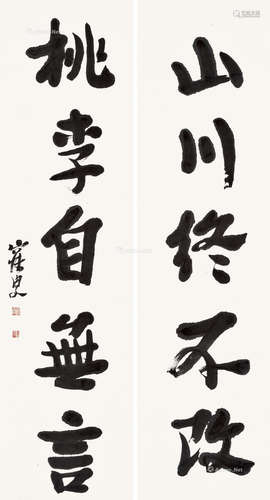 山川终不改
桃李自無言